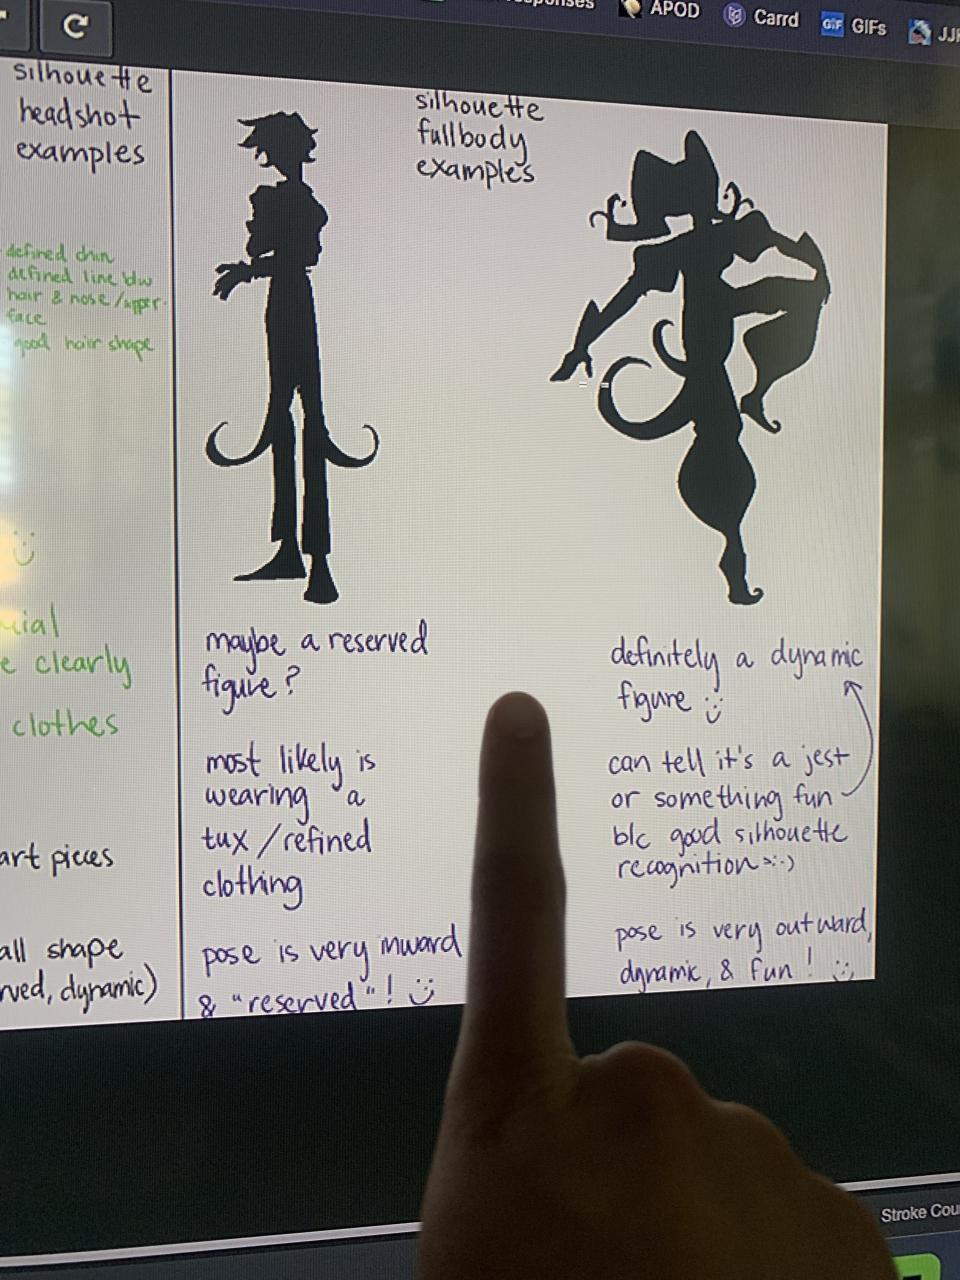 APOD
Carrd
GIF
GIFs
silhouette
headshot
examples
defined chin
defined line b/w
hair & nose/upper
face
good hair shape
e clearly
clothes
art pieces
all shape
dynamic)
silhouette
fullbody
examples
maybe a reserved
figure?
most likely is
wearing a
tux/refined
clothing
pose is very inward
& "reserved"! :)
definitely a dynamic
figure :)
can tell it's a jest
or something fun
b/c good silhouette
recognition >:-)
pose is very outward,
dynamic, & fun! :)
Stroke